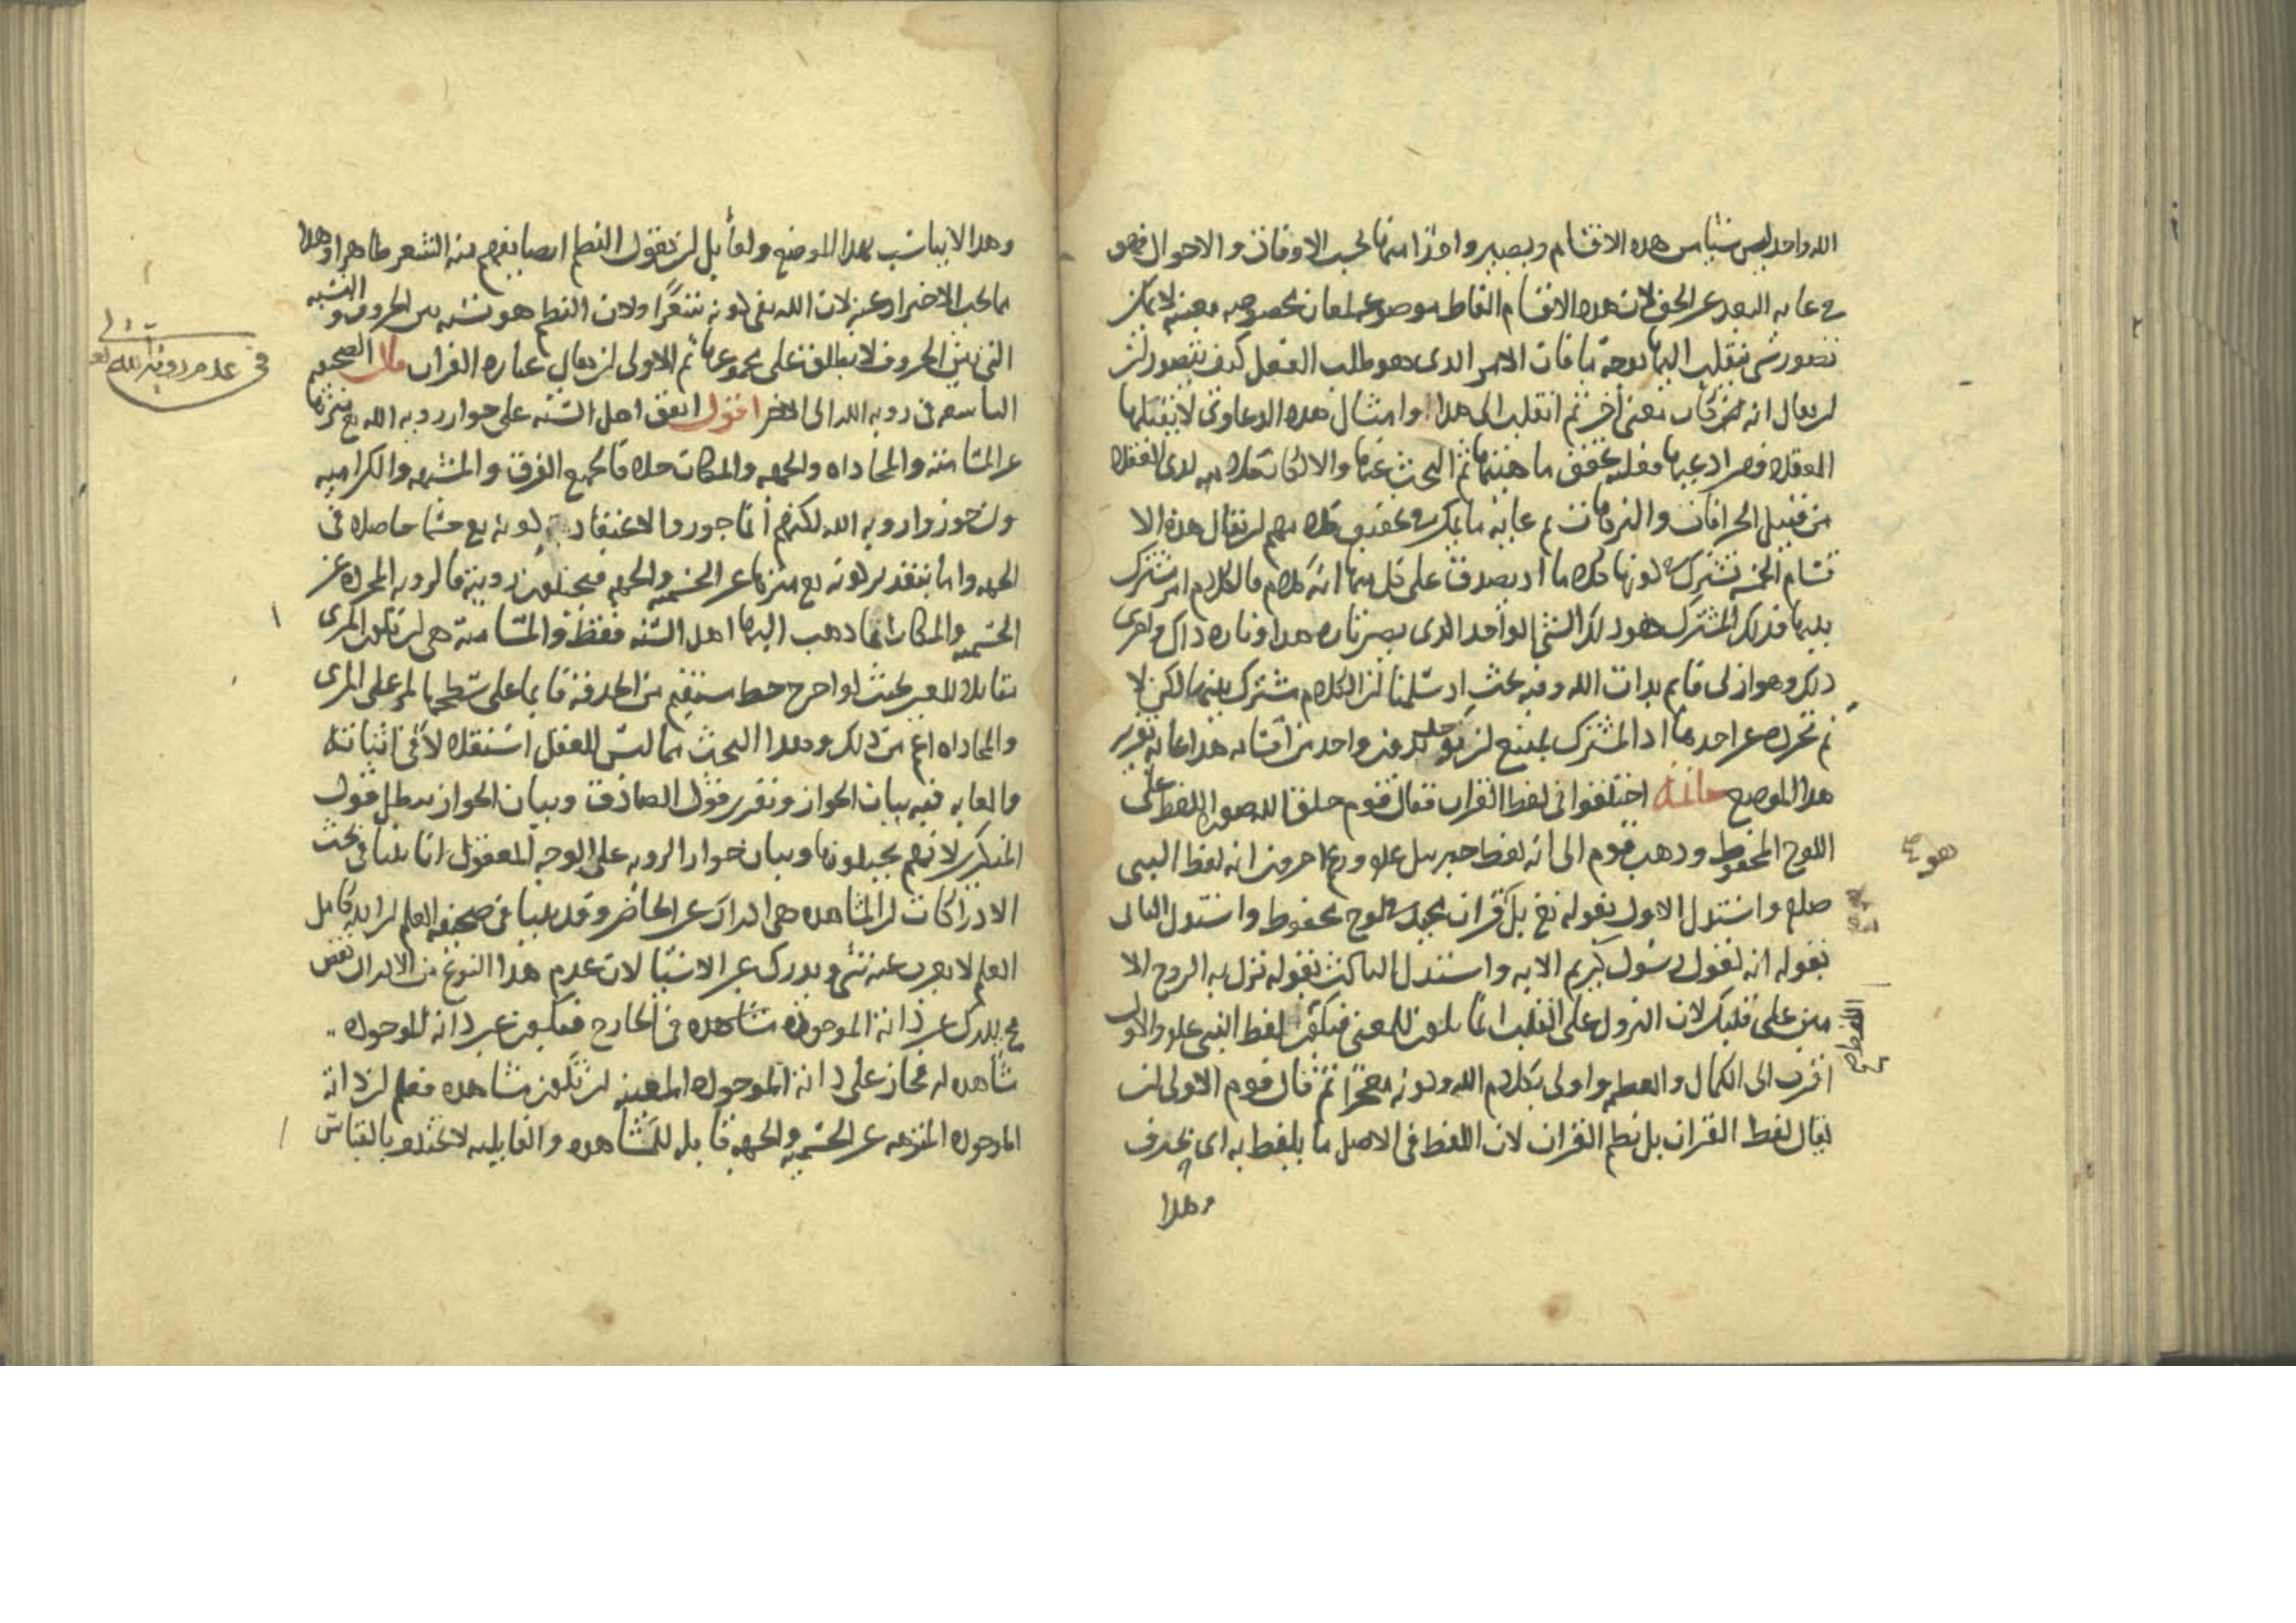 الله واحد ليس شيأ من هذه الاقسام ويصير واحدا منها بحسب الاوقات والاحوال فهو
في غاية البعد عن الحق لان هذه الاقسام الفاظ موضوعة لمعان مخصوصة معينة لا يمكن
تصور شئ ينقلب اليها بوجه ما فان الامر الذي هو طلب الفعل كيف يتصور لن
لن يقال انه كان معنى اخر ثم انقلب الى هذا وامثال هذه الدعاوي لا يقبلها
العقلا فمن ادعى فعليه تحقق ماهيتها ثم البحث عنها والا لكان كلامه لدى العقلا
من قبيل الخرافات والترهات ثم غاية ما يمكن في تحقيق كلامهم لن يقال هذه الا
قسام الخمسة تشترك في كونها كلاما اذ يصدق على كل منها انه كلام فالكلام امر مشترك
بينها فذلك المشترك هو ذلك الشئ الواحد الذي يصير تارة هذا وتارة ذاك واخرى
ذلك وهو ازلي قايم بذات الله وفيه بحث اذ سلمنا لن الكلام مشترك بينها لكن لا
ثم تجرده عن احدها اذ المشترك يمتنع لن يوجد بدون واحد من اقسامه هذا غاية تقرير
هذا الموضع خاتمة اختلفوا في لفظ القران فقال قوم خلق الله صورة اللفظ على
اللوح المحفوظ وذهب قوم الى انه لفظ جبريل علم وزعم اخرون انه لفظ النبي
هو
صلعم واستدل الاول بقوله تع بل هو قران مجيد في لوح محفوظ واستدل الثاني
بقوله انه لقول رسول كريم الاية واستدل الثالث بقوله نزل به الروح الا
مين على قلبك لان النزول على القلب انما يكون للمعنى فيكون لفظ النبي علم والاول
اللفظ
اقرب الى الكمال والعظمة واولى بكلام الله وكونه معجزا ثم قال قوم الاولى لن
يقال لفظ القران بل نظم القران لان اللفظ في الاصل ما يلفظ به اي يحذف
وهذا
وهذا لا يناسب هذا الموضع ولقائل لن يقول النظم ايضا يفهم منه الشعر ظاهرا وهذا
مما يجب الاحتراز عنه لان الله نفى كونه شعرا ولان النظم هو نسبة بين الحروف والنسبة
التي بين الحروف لا يطلق على مجموعها ثم الاولى لن يقال عبارة القران قال الصحيفة
التاسعة في روية الله الى اخر اقول اتفق اهل السنة على جواز روية الله تع منزها
في عدم روية الله تعالى
عن المسامتة والمحاذاة والجهة والمكان خلافا لجميع الفرق والمشبهة والكرامية
ولن جوزوا روية الله لكنهم انما جوزوا لاعتقاد كونه تع جسما حاصلا في
الجهة واما بتقدير كونه تع منزها عن الجسمية والجهة فيحيلون رويته فالروية المجردة عن
الجسمية والمكان انما ذهب اليها اهل السنة فقط والمسامتة هي لن يكون المرئ
مقابلا للعين بحيث لو اخرج خط مستقيم من الحدقة قايما على سطحها لمر على المرئ
والمحاذاة اعم من ذلك وهذا البحث مما ليس للعقل استقلالا في اثباته
والغاية فيه بيان الجواز وتقرير قول الصادق وبيان الجواز يبطل قول
المنكرين لانهم يحيلونها وبيان جواز الروية على الوجه المعقول انا بينا في بحث
الادراكات لن المشاهدة هي ادراك عين الحاضر وقد بينا في صحيفة العلم لن الله كامل
العلم لا يعزب عنه شئ ويدرك عين الاشيا لان عدم هذا النوع من الادراك نقص
فح يدرك عين ذاته الموجودة مشاهدة في الخارج فيكون عين ذاته الموجودة
مشاهدة له فجاز على ذاته الموجودة المعينة لن تكون مشاهدة فعلم لن ذاته
الموجودة المنزهة عن الجسمية والجهة قابلة للمشاهدة والقابلية لا تختلف بالقياس